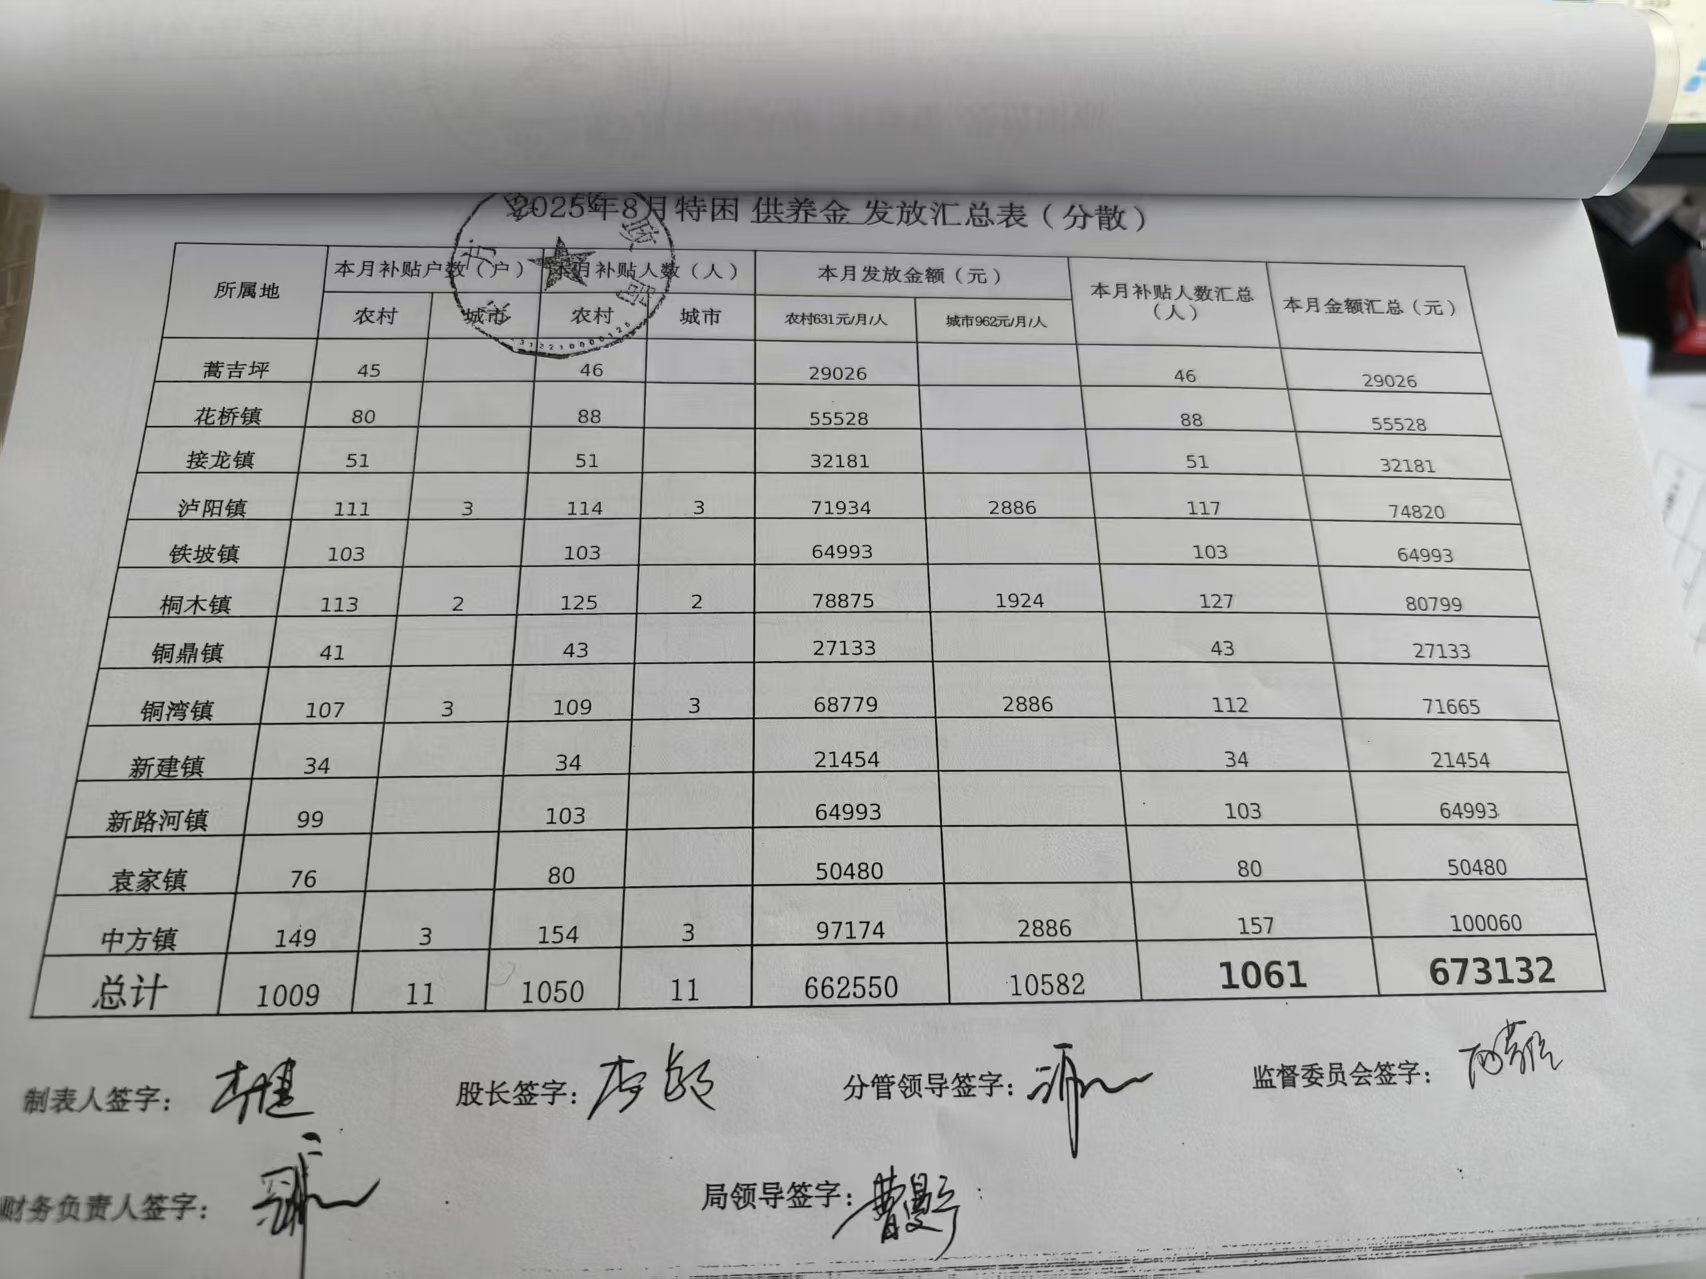 2025年8月特困 供养金 发放汇总表（分散）
所属地 本月补贴户数（户） 本月补贴人数（人） 本月发放金额（元） 本月补贴人数汇总（人） 本月金额汇总（元）
农村 城市 农村 城市 农村631元/月/人 城市962元/月/人
蒿吉坪 45 46 29026 46 29026
花桥镇 80 88 55528 88 55528
接龙镇 51 51 32181 51 32181
泸阳镇 111 3 114 3 71934 2886 117 74820
铁坡镇 103 103 64993 103 64993
桐木镇 113 2 125 2 78875 1924 127 80799
铜鼎镇 41 43 27133 43 27133
铜湾镇 107 3 109 3 68779 2886 112 71665
新建镇 34 34 21454 34 21454
新路河镇 99 103 64993 103 64993
袁家镇 76 80 50480 80 50480
中方镇 149 3 154 3 97174 2886 157 100060
总计 1009 11 1050 11 662550 10582 1061 673132
制表人签字： 股长签字： 分管领导签字： 监督委员会签字：
财务负责人签字： 局领导签字：